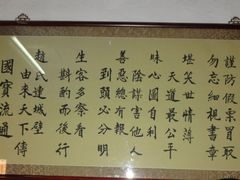 謹防假票冒取
勿忘細視書章
堪笑世情薄
天道最公平
昧心圖自利
陰謀害他人
善惡總有報
到頭必分明
生客多察看
斟酌而後行
趙氏連城璧
由來天下傳
國寶流通